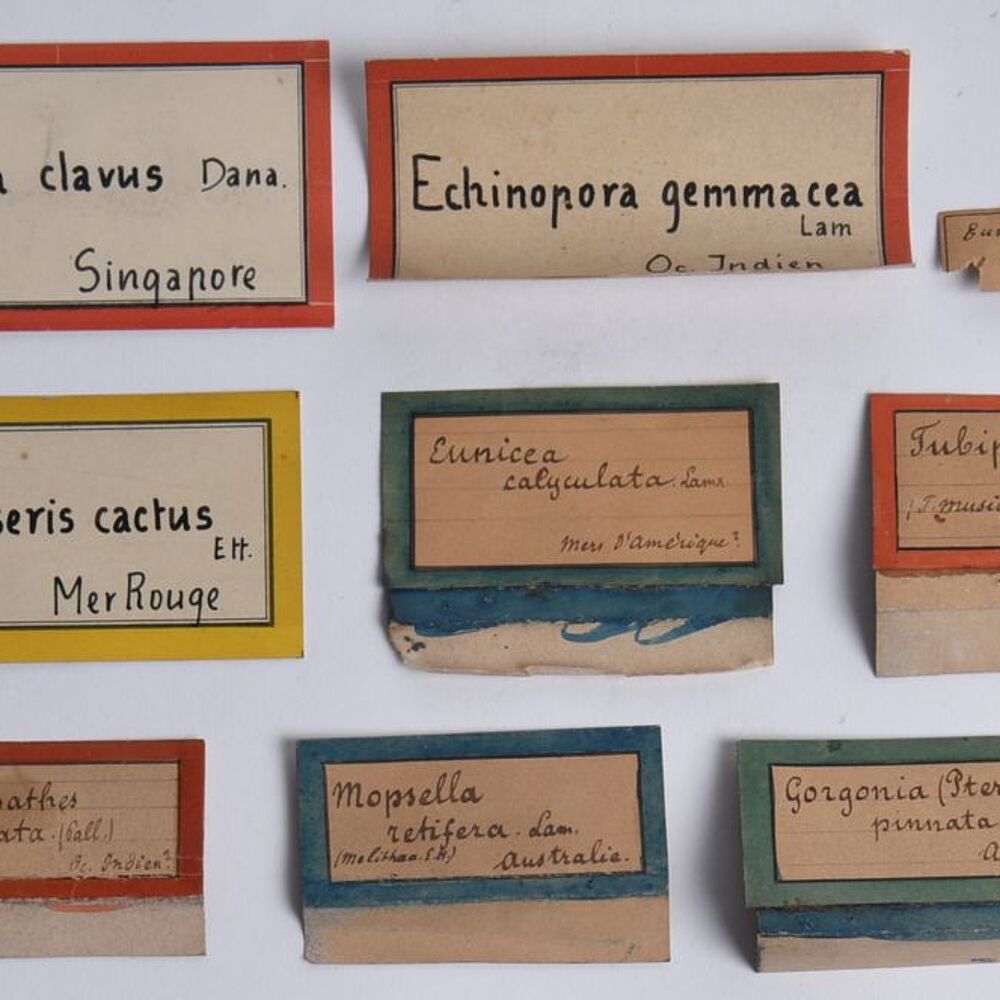 a clavus Dana.
Singapore
Echinopora gemmacea
Lam
Oc. Indien
Eun
seris cactus
EH.
Mer Rouge
Eunicea
calyculata. Lamx.
Mers d'Amérique?
Tubip
(T. music
pathes
ata. (Pall.)
Oc. Indien?
Mopsella
retifera. Lam.
(Melithaea. E.H.)
Australie.
Gorgonia (Pter
pinnata
A